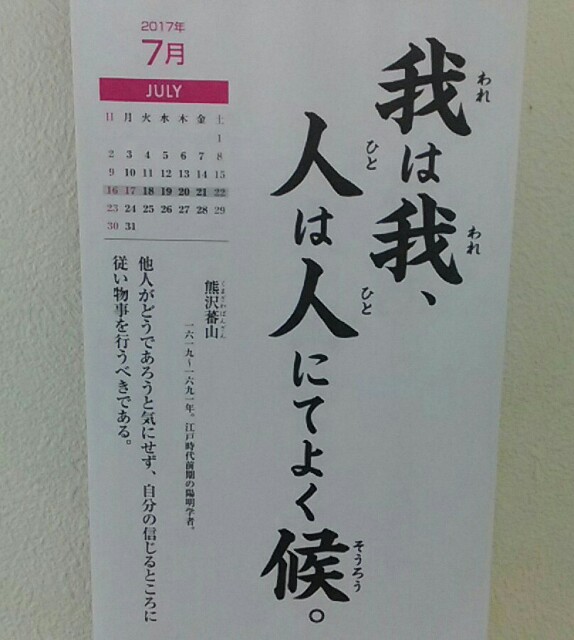 2017年
7月
JULY
日 月 火 水 木 金 土
1
2 3 4 5 6 7 8
9 10 11 12 13 14 15
16 17 18 19 20 21 22
23 24 25 26 27 28 29
30 31
我は我、
われ
われ
人は人にてよく候。
ひと
ひと
そうろう
熊沢蕃山
くまざわばんざん
一六一九〜一六九一年。江戸時代前期の陽明学者。
他人がどうであろうと気にせず、自分の信じるところに
従い物事を行うべきである。